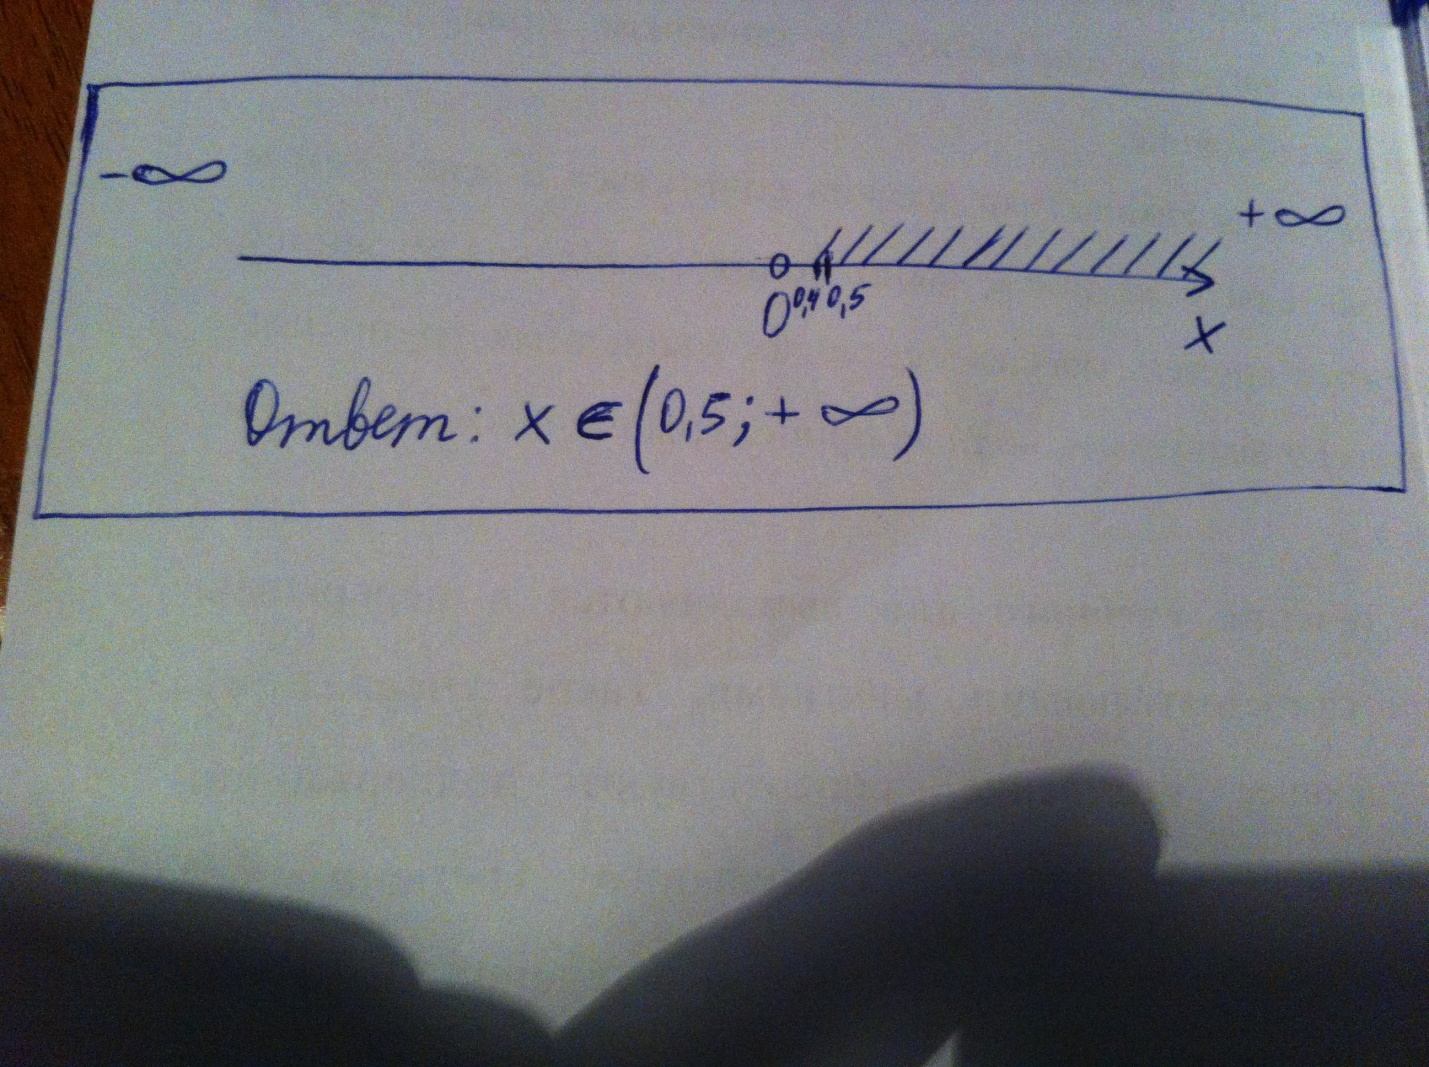 -∞
+∞
0 0,4 0,5
x
Ответ: x ∈ (0,5; + ∞)